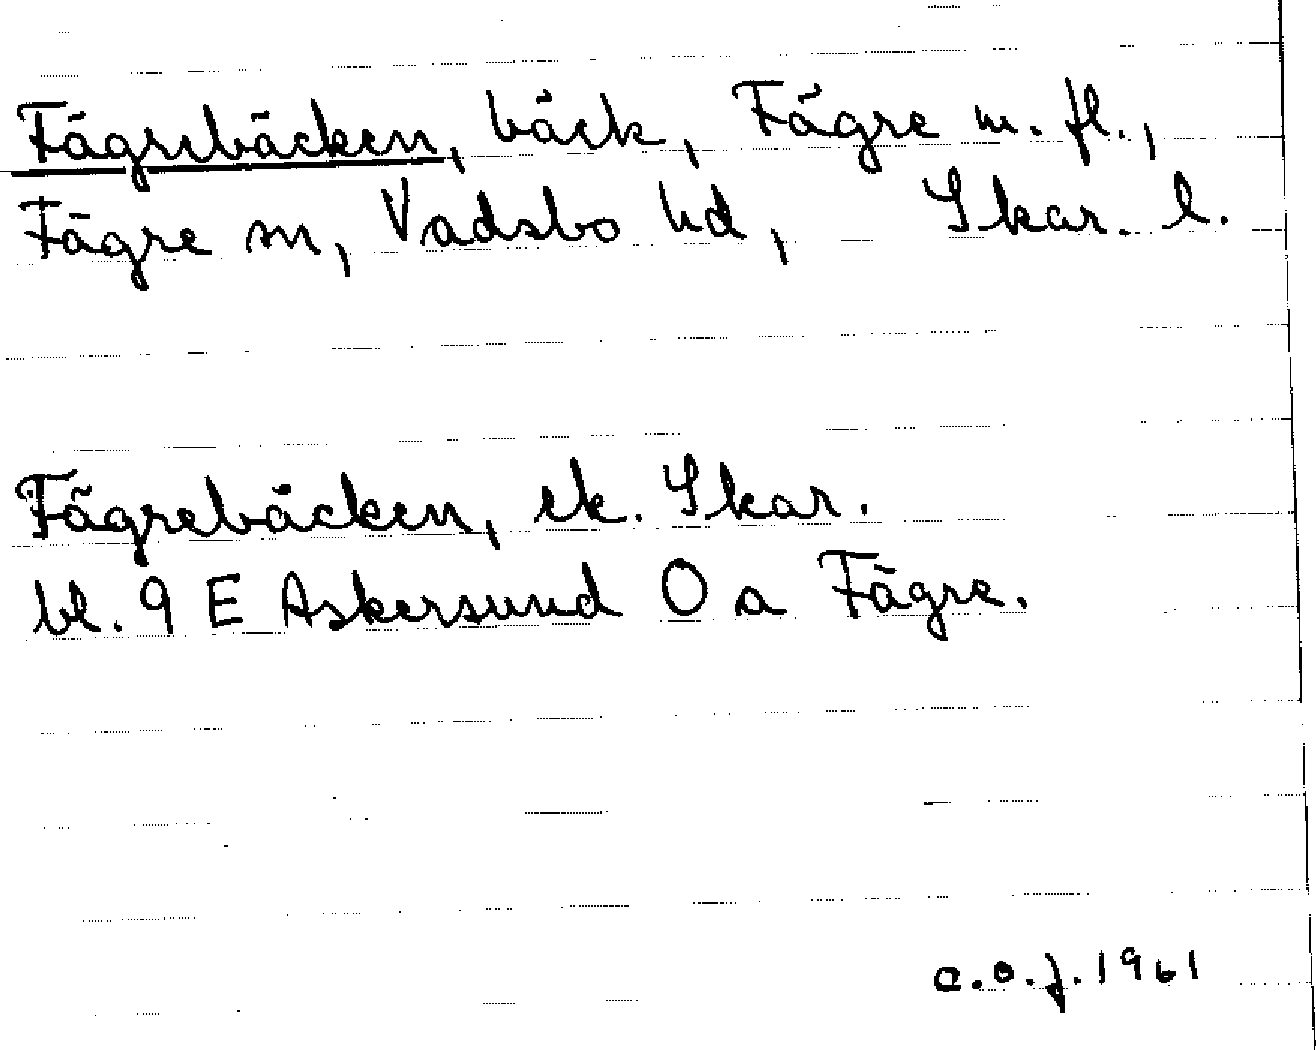 Fägrebäcken, bäck, Fägre m. fl.,
Fägre sn, Vadsbo hd, Skar. l.
Fägrebäcken, ek. Skar.
bl. 9 E Askersund O a Fägre.
C.O.J. 1961